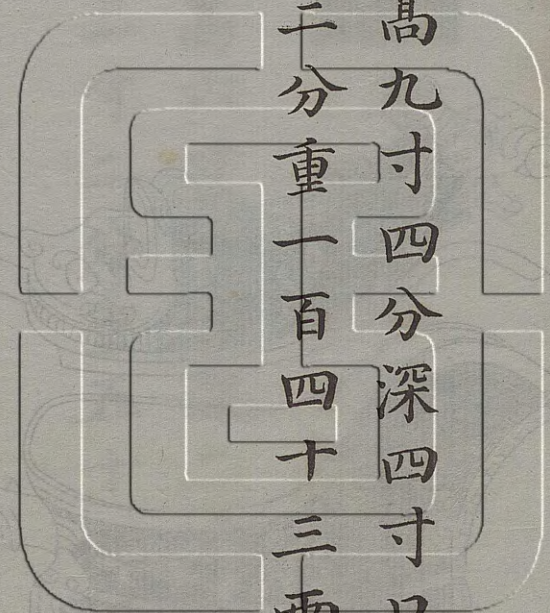 高九寸四分深四寸口
二分重一百四十三两